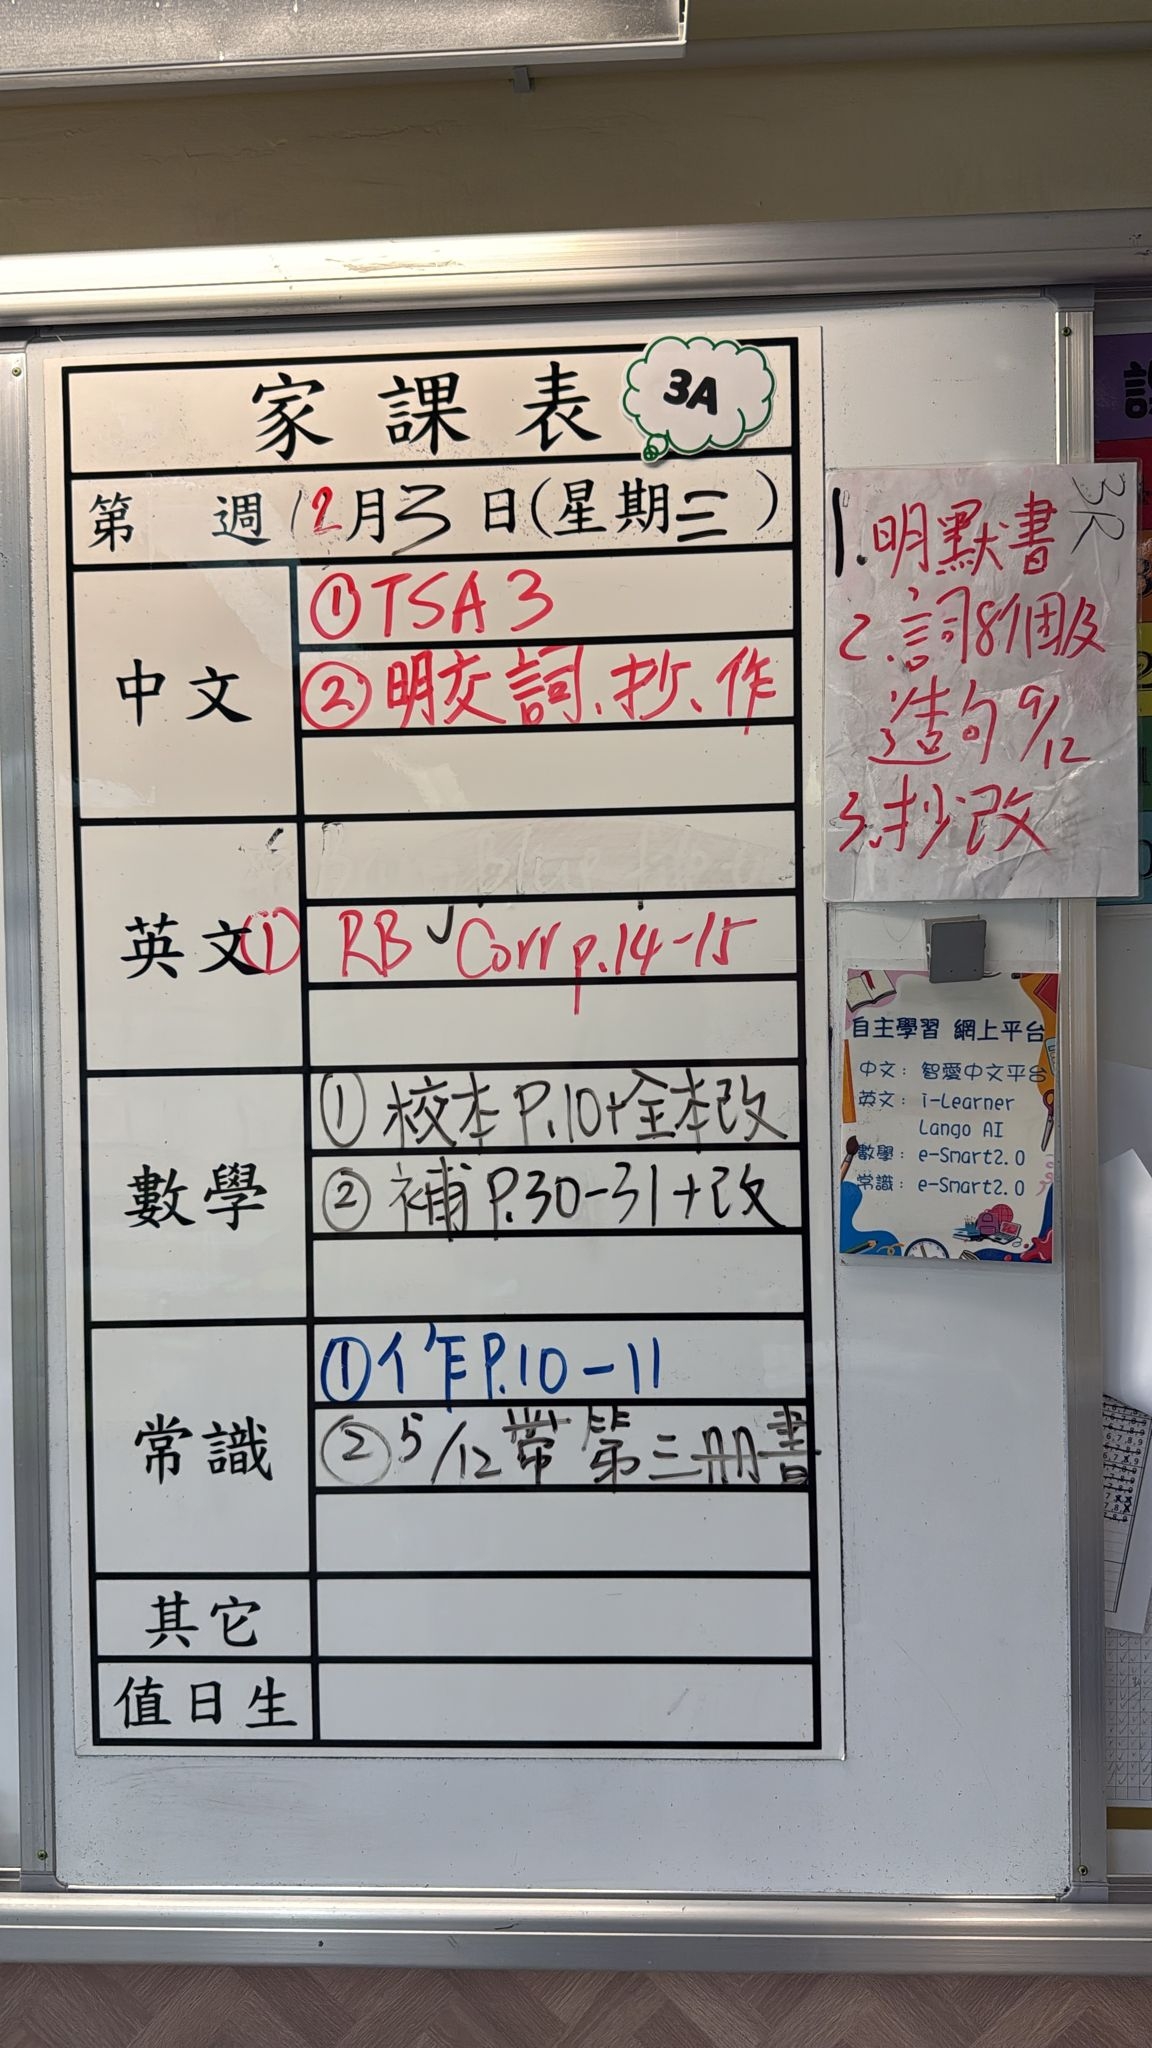 家課表
3A
第 週 12月3日(星期三)
中文
①TSA 3
②明交詞、抄、作
英文
① RB Corr p.14-15
數學
①校本P.10+全本改
②補P.30-31+改
常識
①作P.10-11
②5/12帶第三冊書
其它
值日生
3R
1.明默書
2.詞8個及
造句9/12
3.抄改
自主學習 網上平台
中文：智愛中文平台
英文：i-Learner
Lango AI
數學：e-Smart2.0
常識：e-Smart2.0